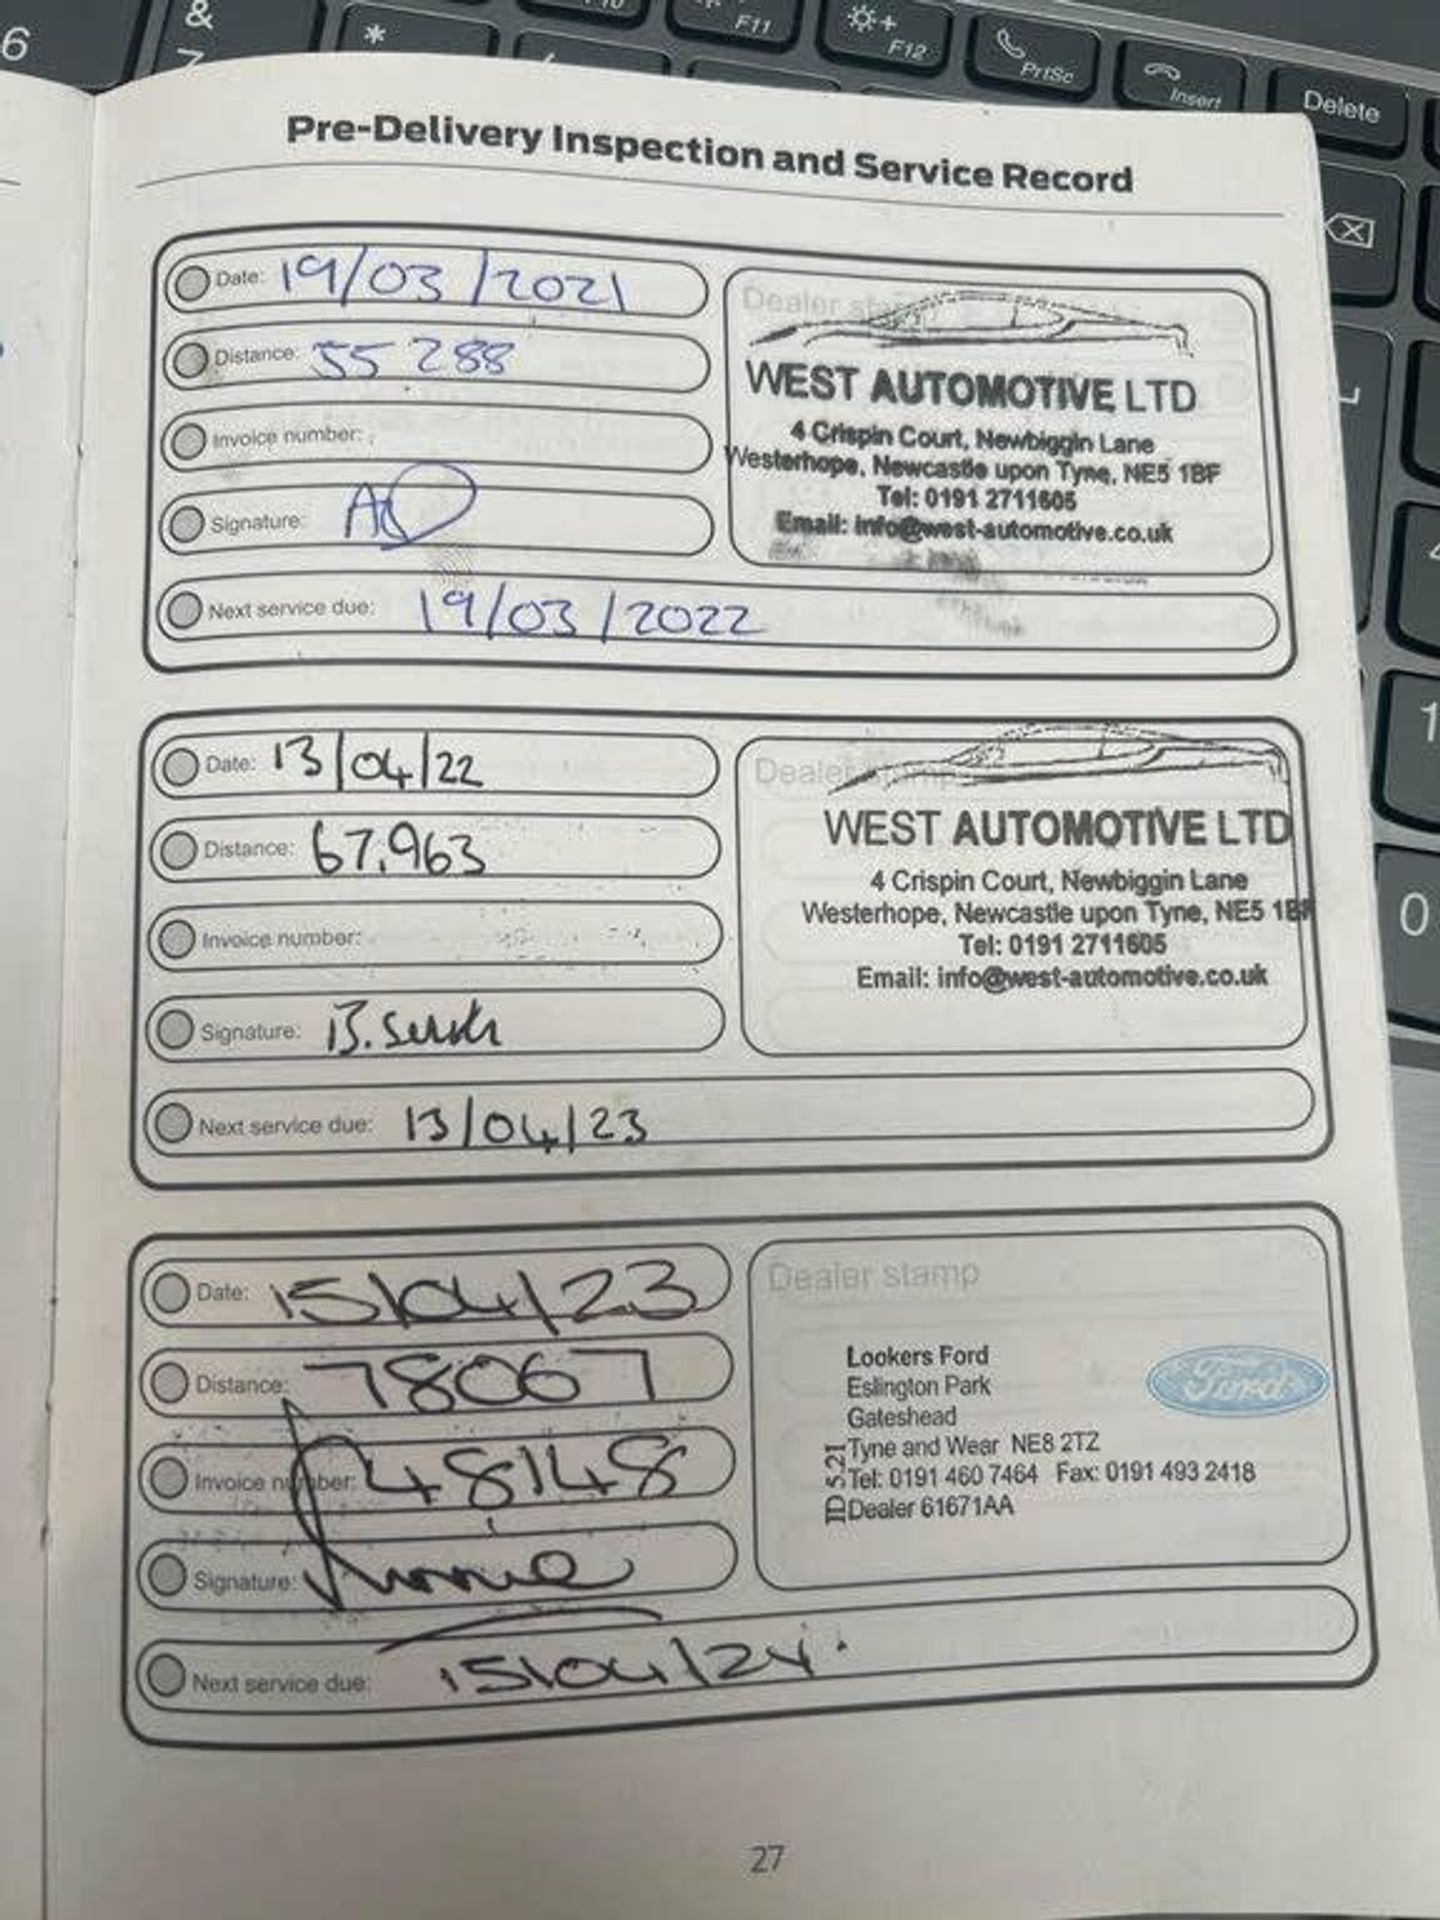 6
&
7
*
F10
F11
F12
PrtSc
Insert
Delete
Pre-Delivery Inspection and Service Record
Date: 19/03/2021
Distance: 55 288
Invoice number:
Signature:
Next service due: 19/03/2022
Dealer stamp
WEST AUTOMOTIVE LTD
4 Crispin Court, Newbiggin Lane
Westerhope, Newcastle upon Tyne, NE5 1BF
Tel: 0191 2711605
Email: info@west-automotive.co.uk
Date: 13/04/22
Distance: 67.963
Invoice number:
Signature: B.
Next service due: 13/04/23
Dealer stamp
WEST AUTOMOTIVE LTD
4 Crispin Court, Newbiggin Lane
Westerhope, Newcastle upon Tyne, NE5 1BF
Tel: 0191 2711605
Email: info@west-automotive.co.uk
Date: 15/04/23
Distance: 78067
Invoice number: 48148
Signature:
Next service due: 15/04/24.
Dealer stamp
Lookers Ford
Eslington Park
Gateshead
Tyne and Wear NE8 2TZ
Tel: 0191 460 7464 Fax: 0191 493 2418
Dealer 61671AA
TD 5.21
Ford
27
1
0